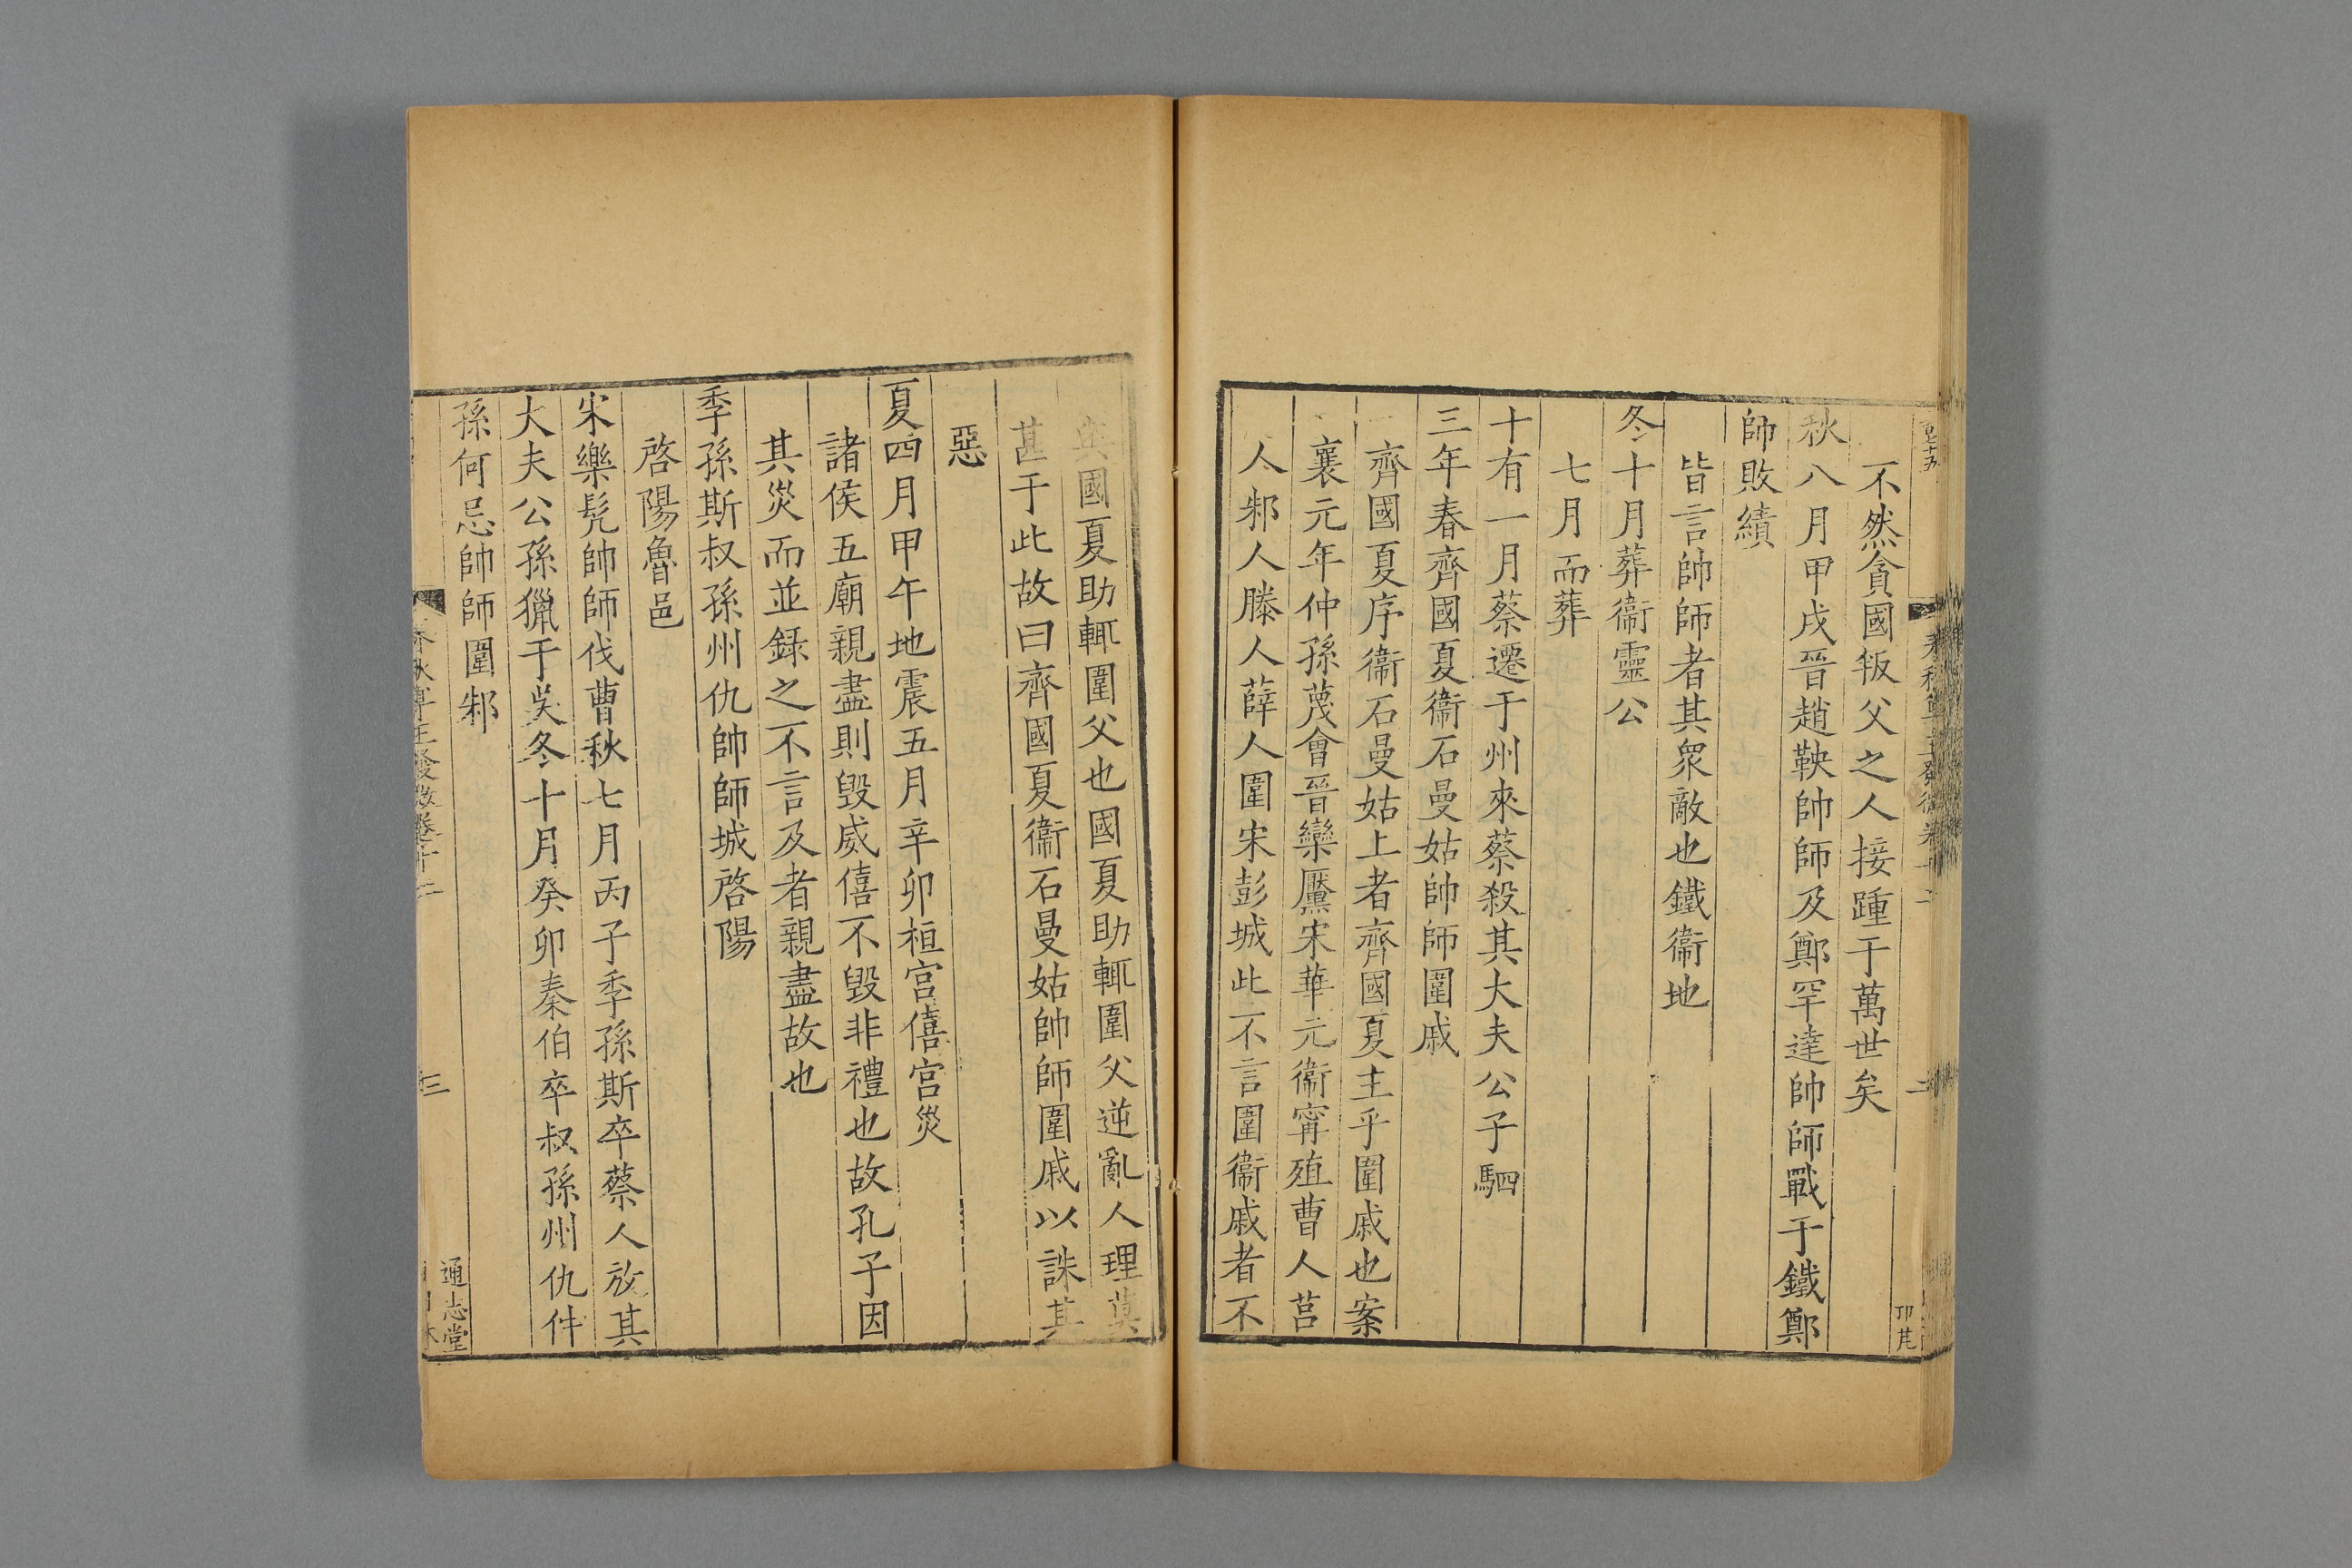 不然貪國叛父之人接踵于萬世矣
秋八月甲戌晉趙鞅帥師及鄭罕達帥師戰于鐵鄭
師敗績
皆言帥師者其衆敵也鐵衞地
冬十月葬衞靈公
七月而葬
十有一月蔡遷于州來蔡殺其大夫公子駟
三年春齊國夏衞石曼姑帥師圍戚
齊國夏序衞石曼姑上者齊國夏主乎圍戚也案
襄元年仲孫蔑會晉欒黶宋華元衞甯殖曹人莒
人邾人滕人薛人圍宋彭城此不言圍衞戚者不
與國夏助輒圍父也國夏助輒圍父逆亂人理莫
甚于此故曰齊國夏衞石曼姑帥師圍戚以誅其
惡
夏四月甲午地震五月辛卯桓宮僖宮災
諸侯五廟親盡則毀威僖不毀非禮也故孔子因
其災而並録之不言及者親盡故也
季孫斯叔孫州仇帥師城啓陽
啓陽魯邑
宋樂髡帥師伐曹秋七月丙子季孫斯卒蔡人放其
大夫公孫獵于吳冬十月癸卯秦伯卒叔孫州仇仵
孫何忌帥師圍邾
三
通志堂